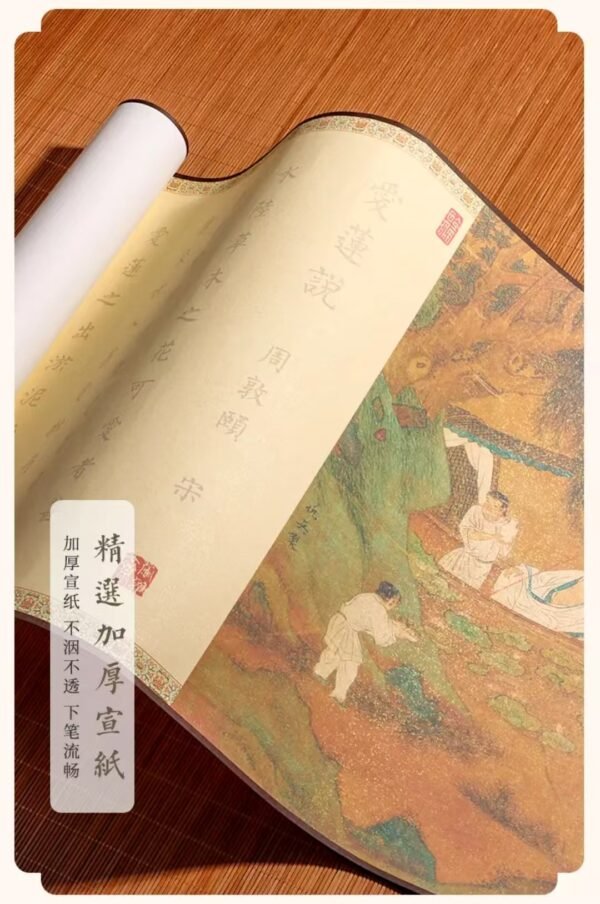 愛蓮説 周敦頤 宋
水陸草木之花可愛者
愛蓮之出淤泥
仇英製
精選加厚宣紙
加厚宣纸 不洇不透 下笔流畅